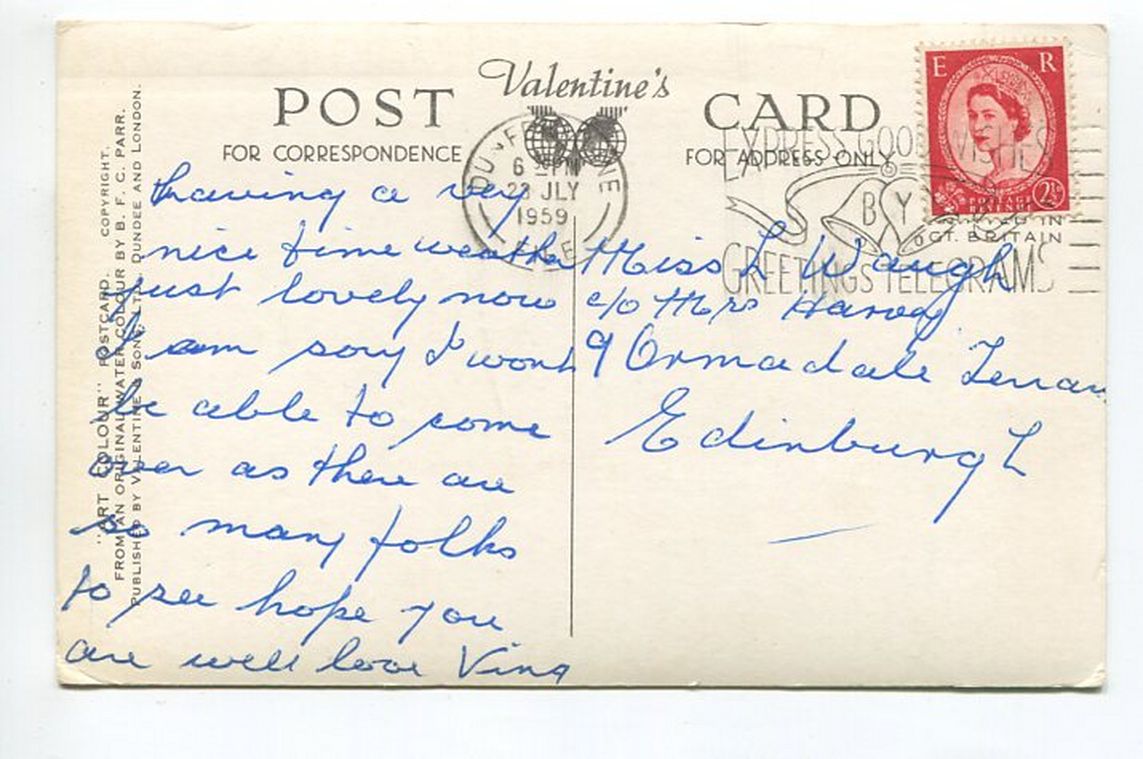 Valentine's
POST CARD
FOR CORRESPONDENCE
FOR ADDRESS ONLY
E R
POSTAGE
REVENUE
2½
PRINTED IN
GT. BRITAIN
6 PM
23 JLY
1959
FIFE
EXPRESS GOOD WISHES
BY
GREETINGS TELEGRAMS
"ART COLOUR" POSTCARD. COPYRIGHT.
FROM AN ORIGINAL WATER-COLOUR BY B. F. C. PARR.
PUBLISHED BY VALENTINE & SONS, LTD., DUNDEE AND LONDON.
having a very
nice time weather
just lovely now
I am sory I wont
be able to come
over as there are
so many folks
to see hope you
are well love Vina
Miss L Waugh
c/o Mrs Harvey
9 Ormadale Terrace
Edinburgh